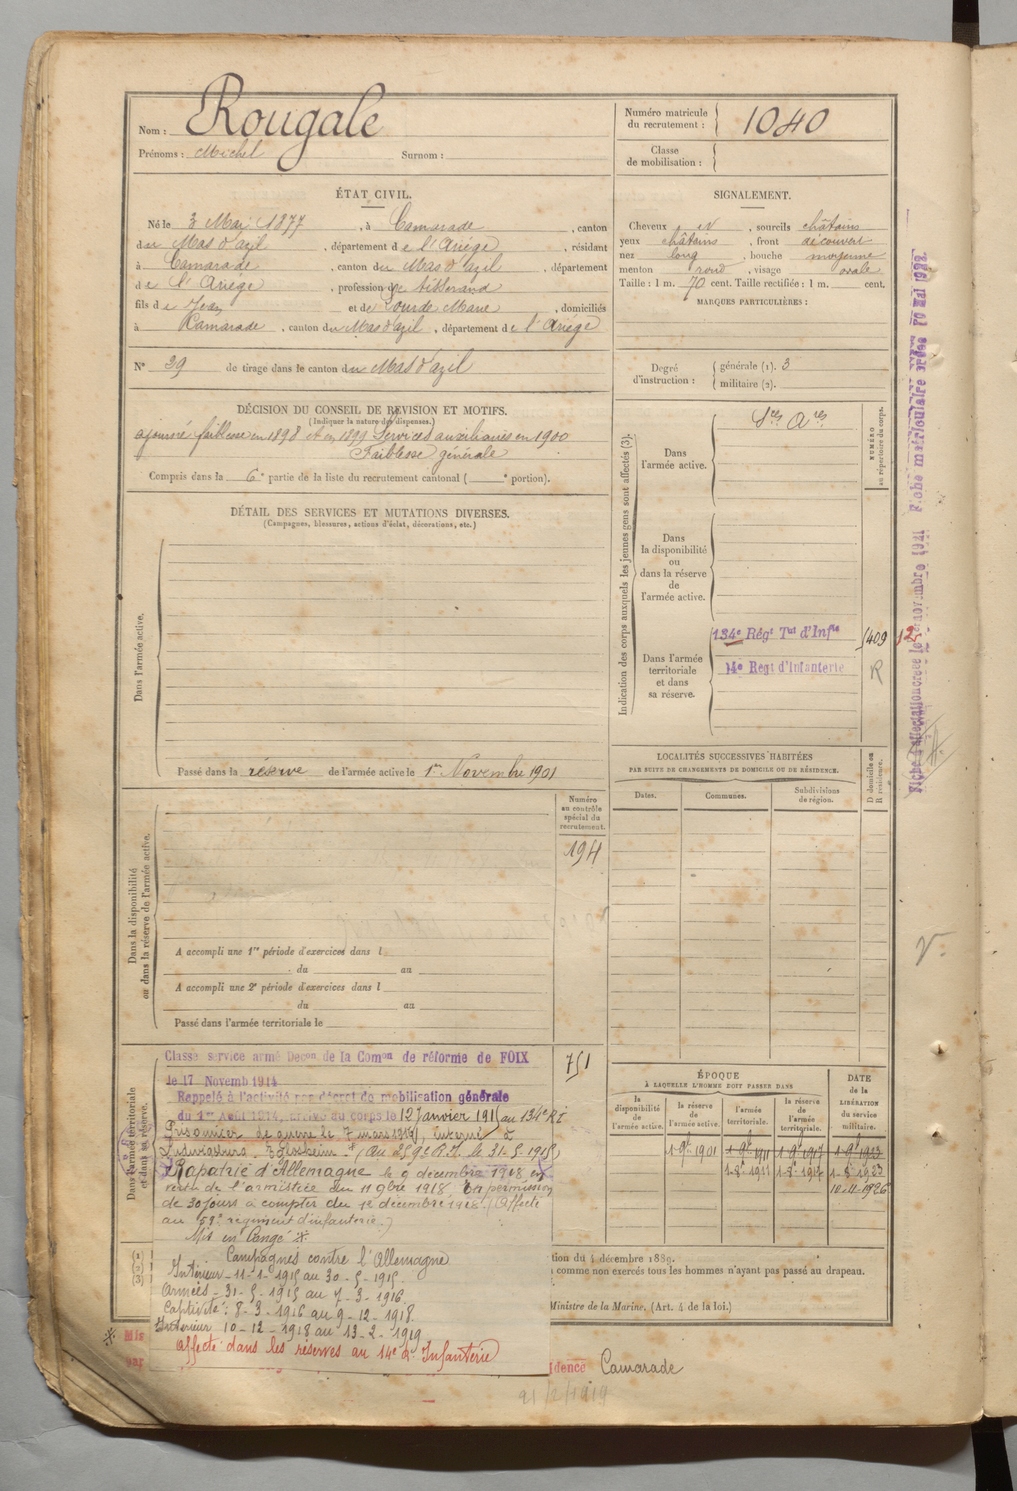 Nom : Rougale
Prénoms : Michel Surnom :
Numéro matricule du recrutement : 1040
Classe de mobilisation :
ÉTAT CIVIL.
Né le 3 Mai 1877, à Camarade, canton
du Mas d'azil, département de l'Ariège, résidant
à Camarade, canton du Mas d'azil, département
de l'Ariège, profession de
fils de Jean et de Lourde Marie, domiciliés
à Camarade, canton du Mas d'azil, département de l'Ariège
N° 29 de tirage dans le canton du Mas d'azil
SIGNALEMENT.
Cheveux N, sourcils châtains
yeux châtains, front découvert
nez long, bouche moyenne
menton rond, visage ovale
Taille : 1 m. 70 cent. Taille rectifiée : 1 m. cent.
MARQUES PARTICULIÈRES :
Degré d'instruction : générale (1). 3
militaire (2).
DÉCISION DU CONSEIL DE REVISION ET MOTIFS.
(Indiquer la nature des dispenses.)
ajourné faiblesse en 1898 et en 1899 Services auxiliaires en 1900
Faiblesse générale
Compris dans la 6e partie de la liste du recrutement cantonal ( e portion).
DÉTAIL DES SERVICES ET MUTATIONS DIVERSES.
(Campagnes, blessures, actions d'éclat, décorations, etc.)
Dans l'armée active.
Passé dans la réserve de l'armée active le 1er Novembre 1901
Indication des corps auxquels les jeunes gens sont affectés (3).
NUMÉRO au répertoire du corps.
Dans l'armée active.
Sces Ares
Dans la disponibilité ou dans la réserve de l'armée active.
Dans l'armée territoriale et dans sa réserve.
134e Régt Tal d'Infie
14e Regt d'Infanterie
5409 12
R
Fiche matriculaire créée 10 mai 1922.
LOCALITÉS SUCCESSIVES HABITÉES
PAR SUITE DE CHANGEMENTS DE DOMICILE OU DE RÉSIDENCE.
Dates. Communes. Subdivisions de région. D domicile ou R résidence.
Dans la disponibilité ou dans la réserve de l'armée active.
Numéro au contrôle spécial du recrutement.
194
A accompli une 1re période d'exercices dans l
du au
A accompli une 2e période d'exercices dans l
du au
Passé dans l'armée territoriale le
Dans l'armée territoriale et dans sa réserve.
751
Classe service armé Decon de la Comon de réforme de FOIX
le 17 Novemb 1914
Rappelé à l'activité par décret de mobilisation générale
du 1er Août 1914, arrivé au corps le 12 Janvier 1915 au 134e RI
Prisonnier de guerre le 7 mars 1916, interné à
(au 259e R.I. le 31-5-1915)
Rapatrié d'Allemagne le 9 decembre 1918 en
vertu de l'armistice du 11 9bre 1918. En permission
de 30 jours à compter du 12 décembre 1918. (Affecté
au 59e régiment d'infanterie.)
Mis en Congé *
Campagnes contre l'Allemagne
Intérieur – 11-1-1915 au 30-5-1915
Armées – 31-5-1915 au 7-3-1916
Captivité : 8-3-1916 au 9-12-1918
Intérieur 10-12-1918 au 13-2-1919
Affecté dans les réserves au 14e d'Infanterie
ÉPOQUE
À LAQUELLE L'HOMME DOIT PASSER DANS
la disponibilité de l'armée active. la réserve de l'armée active. l'armée territoriale. la réserve de l'armée territoriale.
DATE de la LIBÉRATION du service militaire.
1-9b-1901 1-9b-1911 1-9b-1917 1-9b-1923
1-8e-1911 1-8e-1917 1-8-1923
10-11-1926
tion du 4 décembre 1889.
comme non exercés tous les hommes n'ayant pas passé au drapeau.
Ministre de la Marine. (Art. 4 de la loi.)
* Mis
par
idence Camarade
21/2/1919